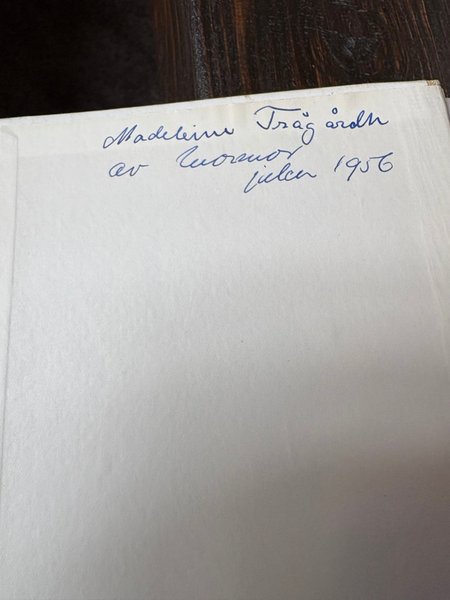 Madeleine Trägårdh
av Mormor
julen 1956